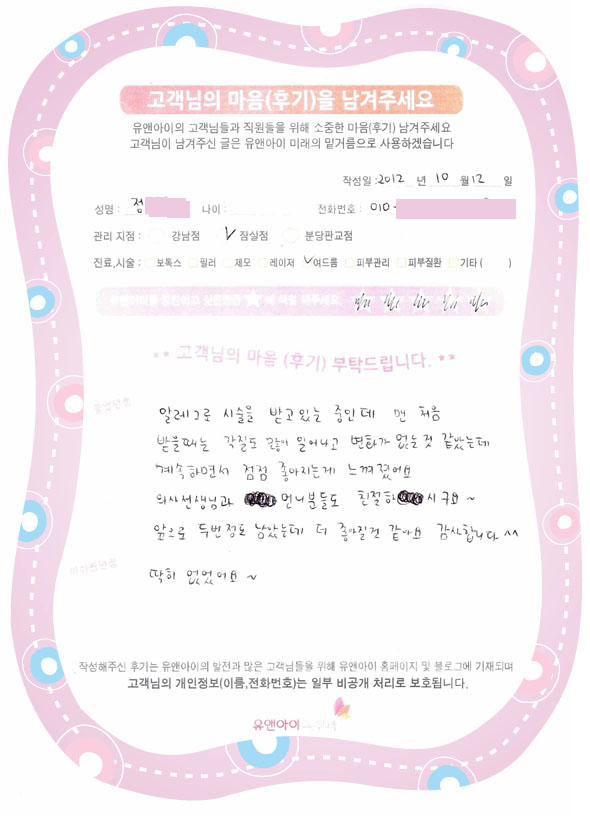 고객님의 마음(후기)을 남겨주세요
유앤아이의 고객님들과 직원들을 위해 소중한 마음(후기) 남겨주세요
고객님이 남겨주신 글은 유앤아이 미래의 밑거름으로 사용하겠습니다
작성일 : 2012 년 10 월 12 일
성명 : 정 나이 : 전화번호 : 010-
관리 지점 : 강남점 잠실점 분당판교점
진료,시술 : 보톡스 필러 제모 레이저 여드름 피부관리 피부질환 기타 ( )
** 고객님의 마음 (후기) 부탁드립니다. **
좋았던점
알레그로 시술을 받고있는 중인데 맨 처음
받을때는 각질도 많이 일어나고 변화가 없는것 같았는데
계속하면서 점점 좋아지는게 느껴졌어요
의사선생님과 언니분들도 친절하시구요 ~
앞으로 두번정도 남았는데 더 좋아질것 같아요 감사합니다 ^^
아쉬웠던점
딱히 없었어요 ~
작성해주신 후기는 유앤아이의 발전과 많은 고객님들을 위해 유앤아이 홈페이지 및 블로그에 기재되며
고객님의 개인정보(이름,전화번호)는 일부 비공개 처리로 보호됩니다.
유앤아이